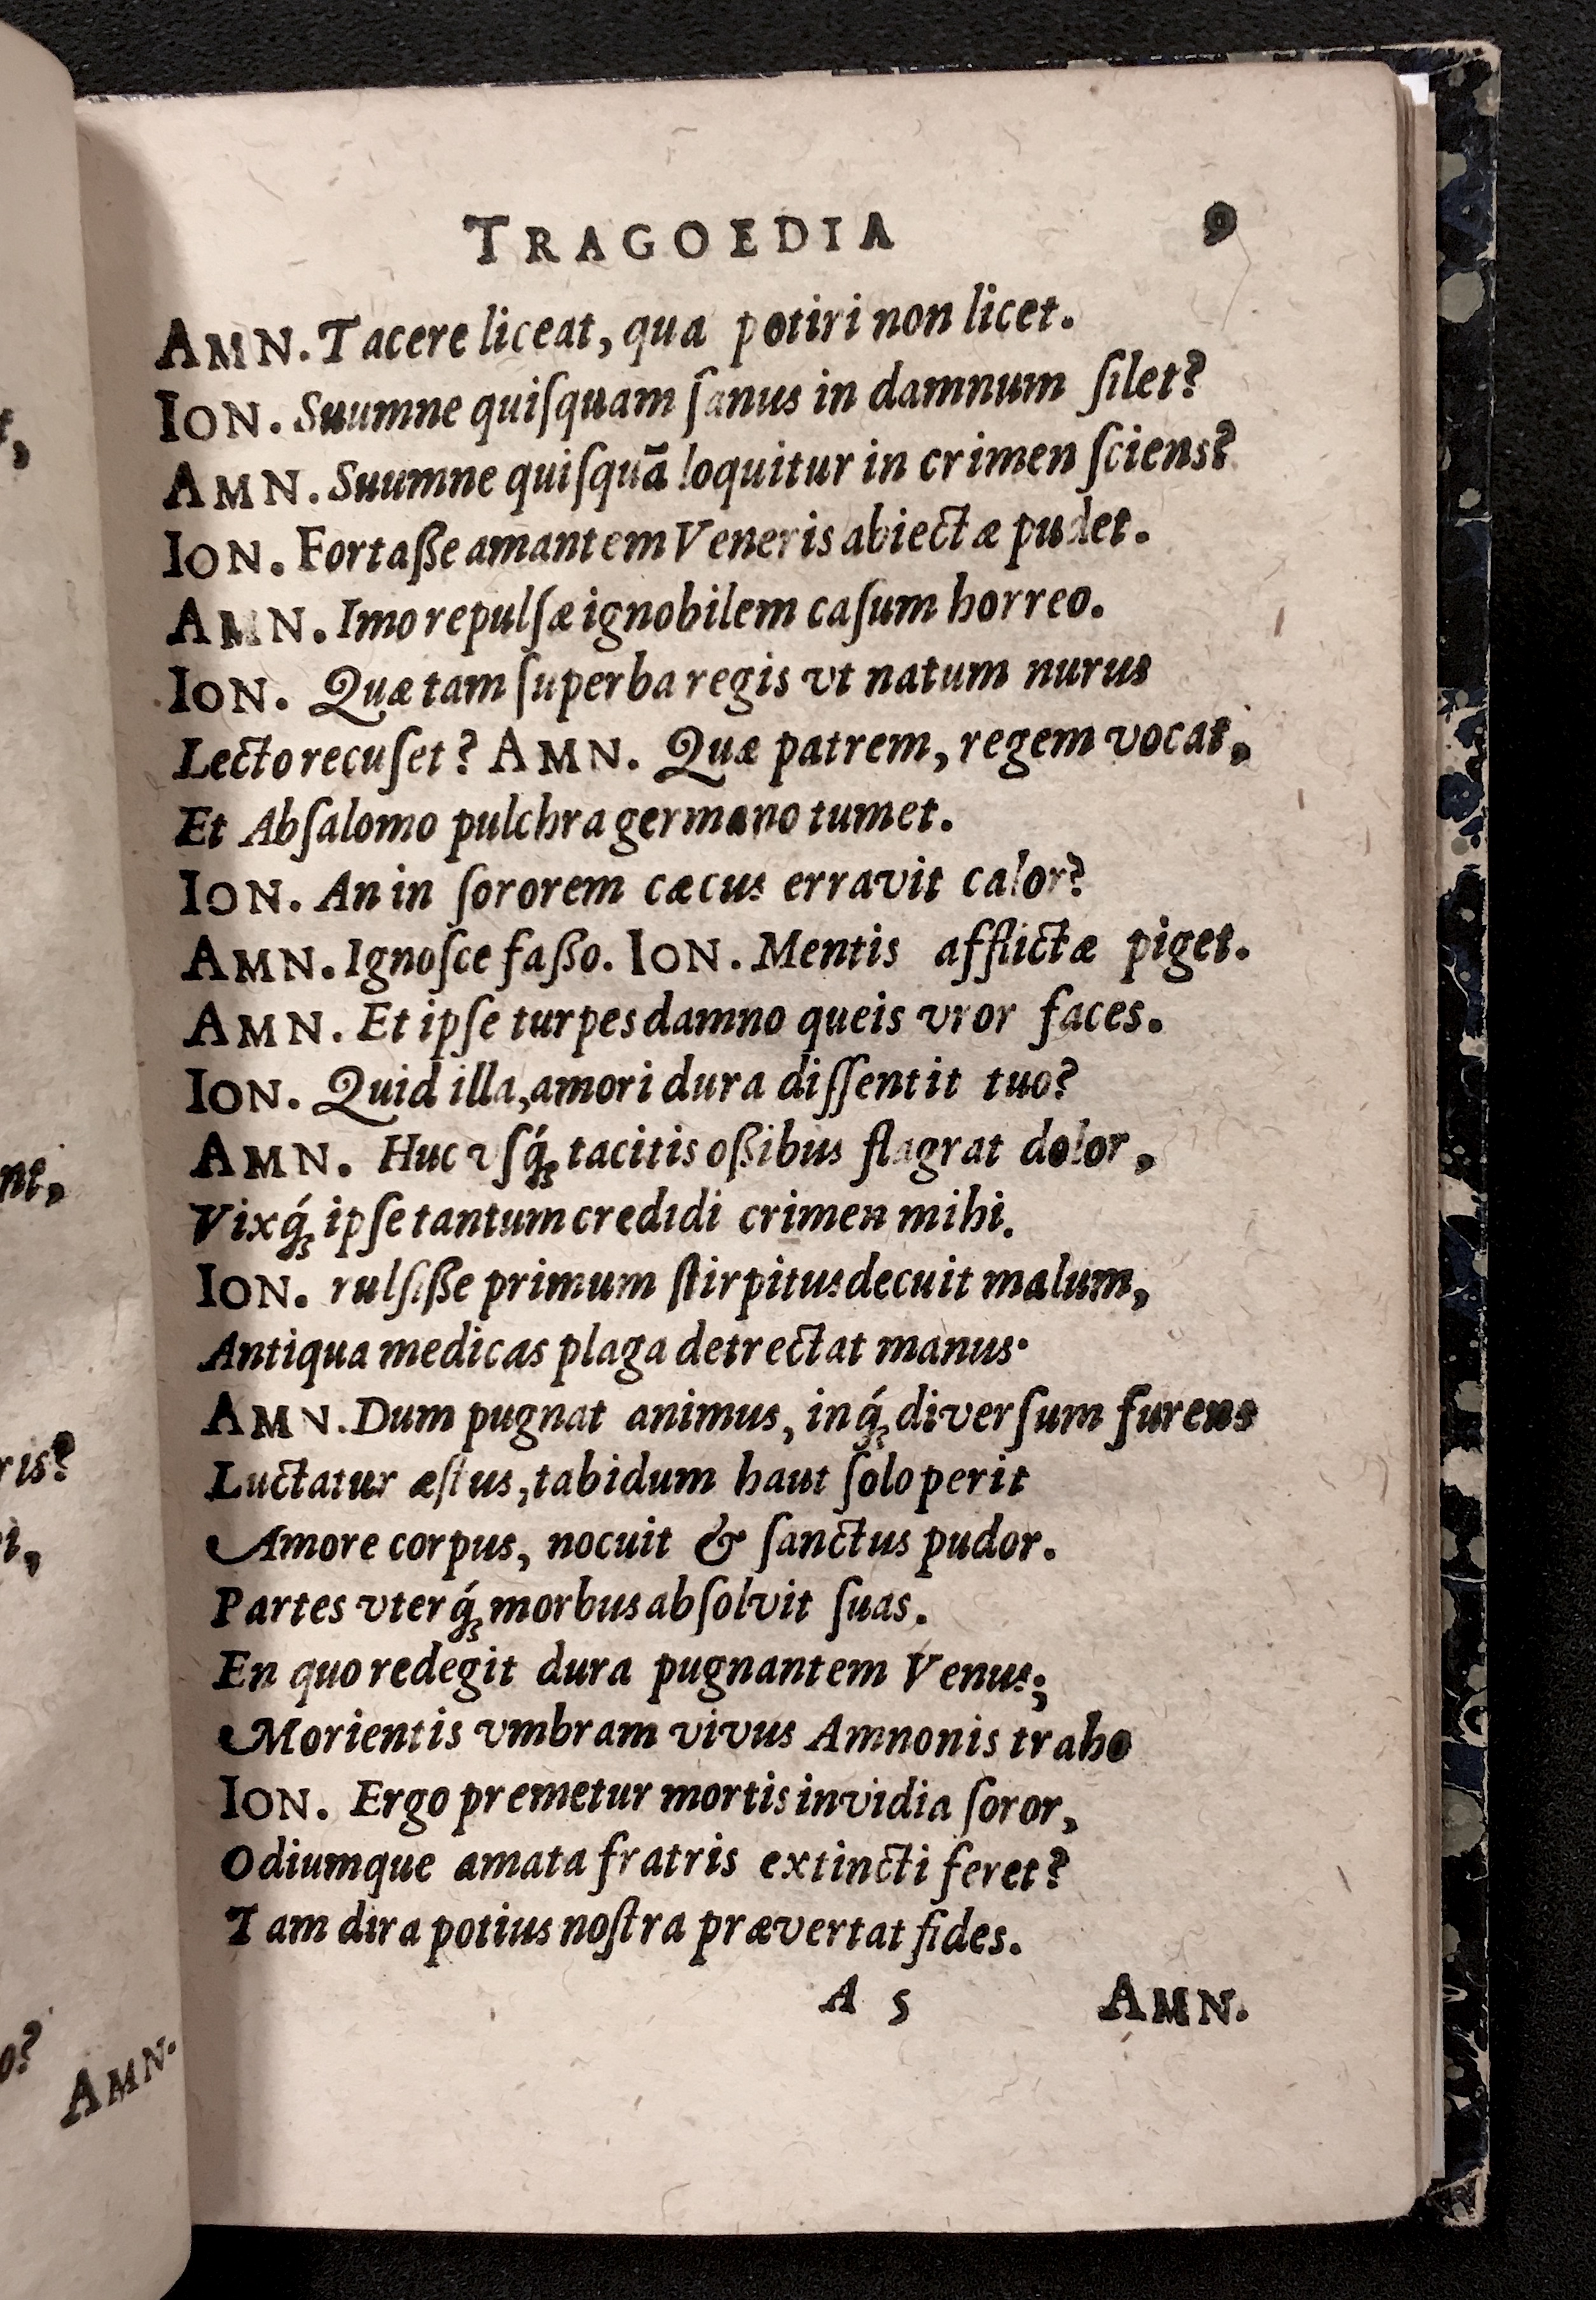 TRAGOEDIA 9
AMN. Tacere liceat, qua potiri non licet.
ION. Suumne quiſquam ſanus in damnum ſilet?
AMN. Suumne quiſquā loquitur in crimen ſciens?
ION. Fortaße amantem Veneris abiectæ pudet.
AMN. Imo repulſæ ignobilem caſum horreo.
ION. Quæ tam ſuperba regis vt natum nurus
Lecto recuſet? AMN. Quæ patrem, regem vocat,
Et Abſalomo pulchra germano tumet.
ION. An in ſororem cæcus erravit calor?
AMN. Ignoſce faßo. ION. Mentis afflictæ piget.
AMN. Et ipſe turpes damno queis vror faces.
ION. Quid illa, amori dura diſſentit tuo?
AMN. Huc vſq́ꝫ tacitis oßibus flagrat dolor,
Vixq́ꝫ ipſe tantum credidi crimen mihi.
ION. rulſiße primum ſtirpitus decuit malum,
Antiqua medicas plaga detrectat manus·
AMN. Dum pugnat animus, inq́ꝫ diverſum furens
Luctatur æſtus, tabidum haut ſolo perit
Amore corpus, nocuit & ſanctus pudor.
Partes vterq́ꝫ morbus abſolvit ſuas.
En quo redegit dura pugnantem Venus;
Morientis vmbram vivus Amnonis traho
ION. Ergo premetur mortis invidia ſoror,
Odiumque amata fratris extincti feret?
Tam dira potius noſtra prævertat fides.
A 5 AMN.
t,
nt,
ris?
i,
o?
AMN.